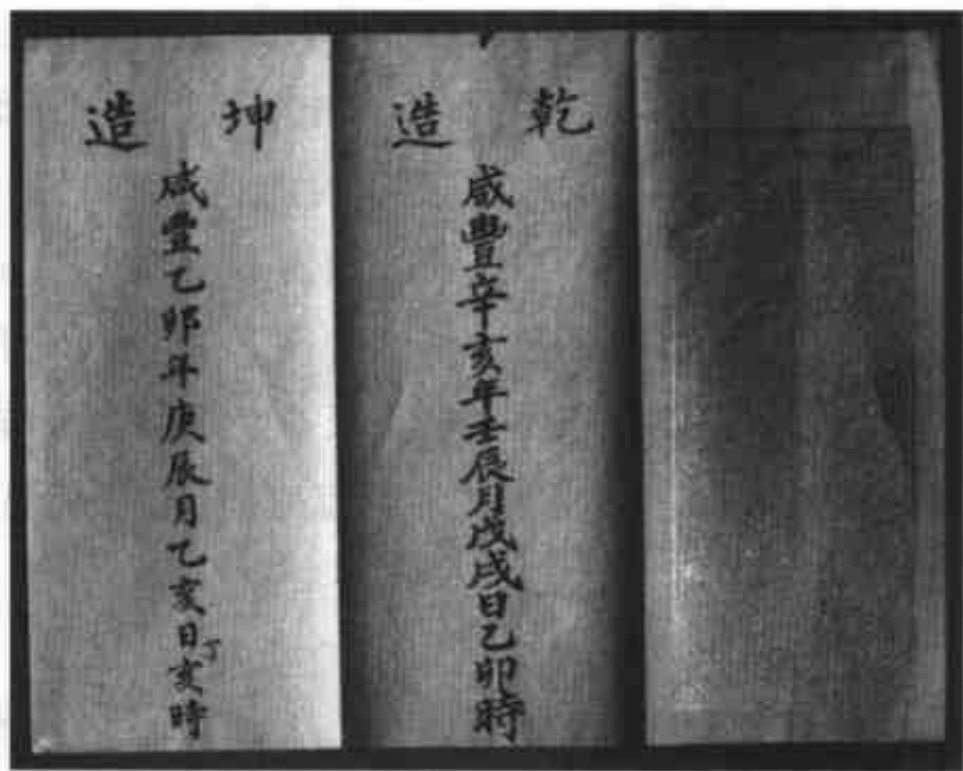 乾造
咸豐辛亥年壬辰月戊戌日乙卯時
坤造
咸豐乙卯年庚辰月乙亥日丁亥時